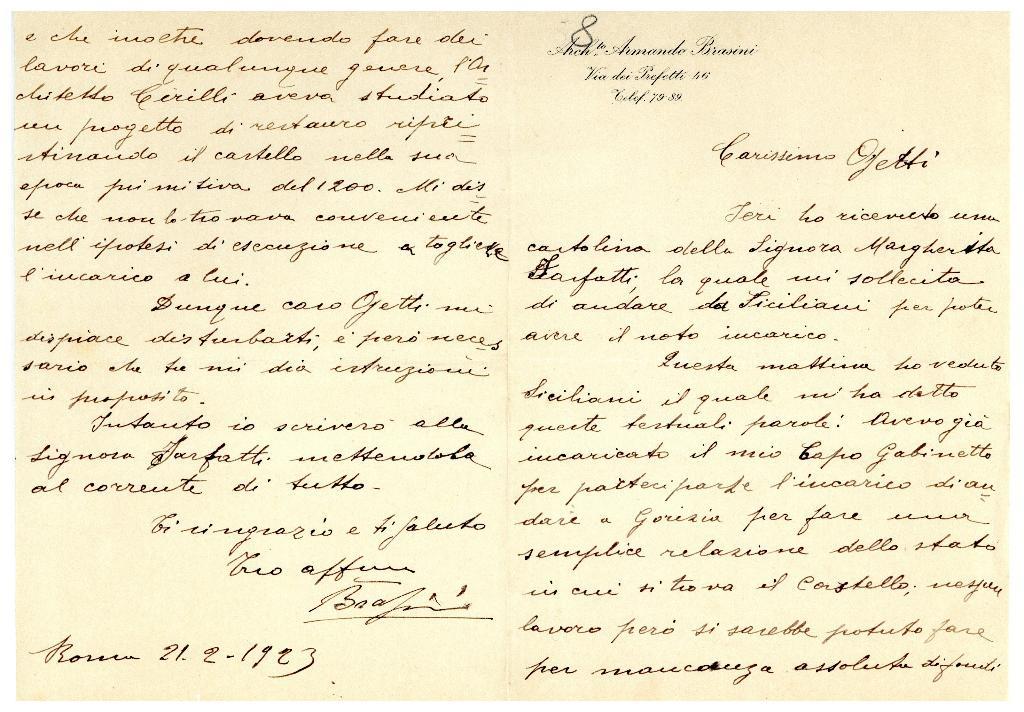 8
Archto Armando Brasini
Via dei Prefetti 46
Telef. 79-89
Carissimo Ojetti
Ieri ho ricevuto una
cartolina della Signora Margherita
Sarfatti, la quale mi sollecita
di andare da Siciliani per poter
avere il noto incarico.
Questa mattina ho veduto
Siciliani il quale mi ha detto
queste testuali parole: Avevo già
incaricato il mio Capo Gabinetto
per parteciparle l'incarico di an=
dare a Gorizia per fare una
semplice relazione dello stato
in cui si trova il Castello; nessun
lavoro però si sarebbe potuto fare
per mancanza assoluta di fondi
e che inoltre dovendo fare dei
lavori di qualunque genere, l'Ar=
chitetto Cirilli aveva studiato
un progetto di restauro ripri=
stinando il castello nella sua
epoca primitiva del 1200. Mi dis=
se che non lo trovava conveniente
nell'ipotesi di esecuzione a togliere
l'incarico a lui.
Dunque caro Ojetti mi
dispiace disturbarti, è però neces=
sario che tu mi dia istruzioni
in proposito.
Intanto io scriverò alla
Signora Sarfatti mettendola
al corrente di tutto.
Ti ringrazio e ti saluto
Tuo affmo
Brasini
Roma 21-2-1923